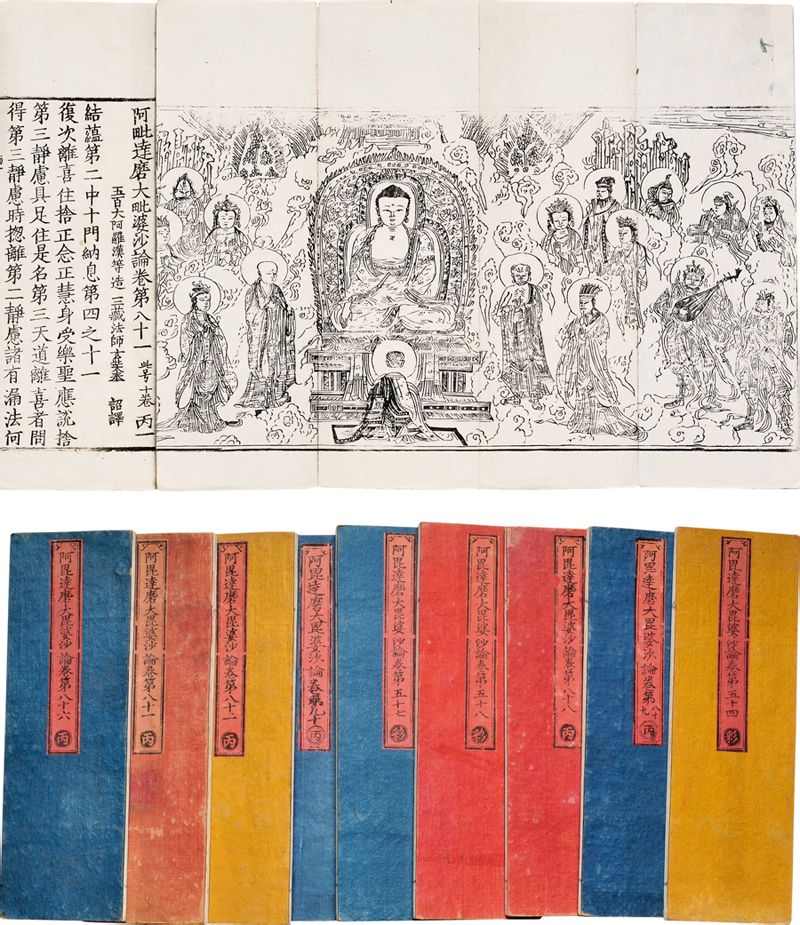 阿毗達磨大毗婆沙論卷第八十一 此号十卷 丙一
五百大阿羅漢等造 三藏法師玄奘奉 詔譯
結蘊第二中十門納息第四之十一
復次離喜住捨正念正慧身受樂聖應說捨
第三靜慮具足住是名第三天道離喜者問
得第三靜慮時揔離第二靜慮諸有漏法何
阿毘達磨大毘婆沙論卷第五十四 彩
阿毘達磨大毘婆沙論卷第八十九 丙
阿毘達磨大毘婆沙論卷第八十八 丙
阿毘達磨大毘婆沙論卷第五十八 彩
阿毘達磨大毘婆沙論卷第五十七 彩
阿毘達磨大毘婆沙論卷第九十 丙
阿毘達磨大毘婆沙論卷第八十一 丙
阿毘達磨大毘婆沙論卷第八十一 丙
阿毘達磨大毘婆沙論卷第八十六 丙